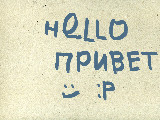 Hello
привет
:) :P